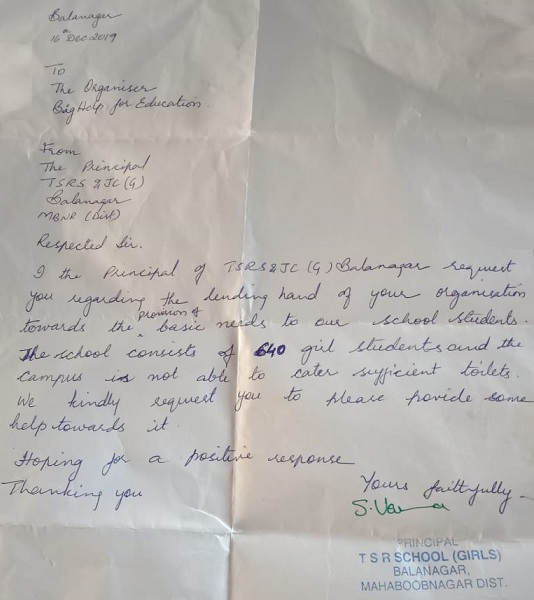 Balanagar
16th Dec 2019
To
The Organiser
Big Help for Education.
From
The Principal
TSRS & JC (G)
Balanagar
MBNR (Dist)
Respected Sir.
I the Principal of TSRS & JC (G) Balanagar request
you regarding the lending hand of your organisation
towards the provision of basic needs to our school students.
The school consists of 640 girl students and the
campus is not able to cater sufficient toilets.
We kindly request you to please provide some
help towards it.
Hoping for a positive response
Thanking you
Yours faithfully
PRINCIPAL
T S R SCHOOL (GIRLS)
BALANAGAR,
MAHABOOBNAGAR DIST.